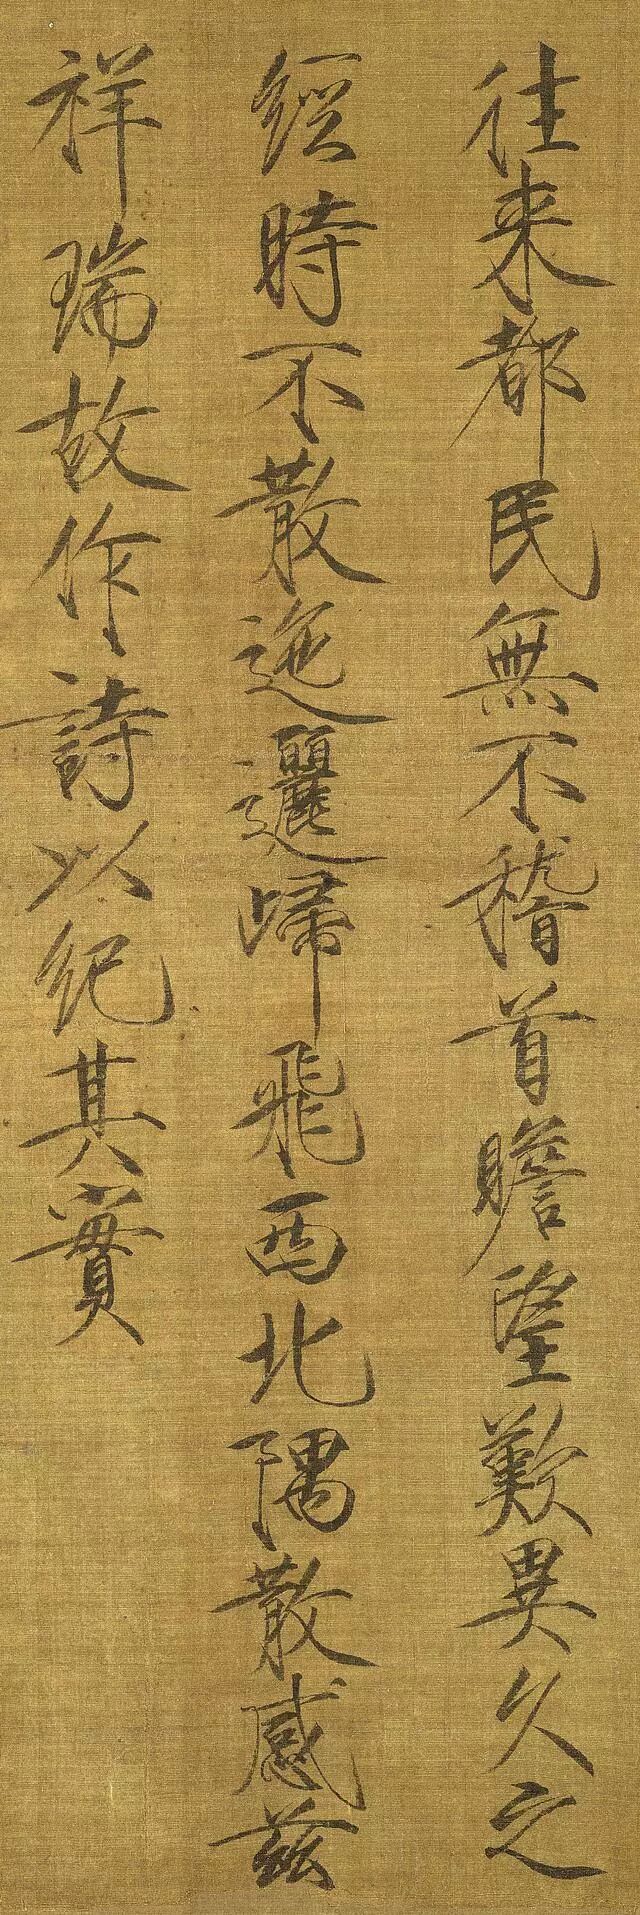 往来都民無不稽首瞻望歎異久之
經時不散迤邐歸飛西北隅散感兹
祥瑞故作詩以紀其實